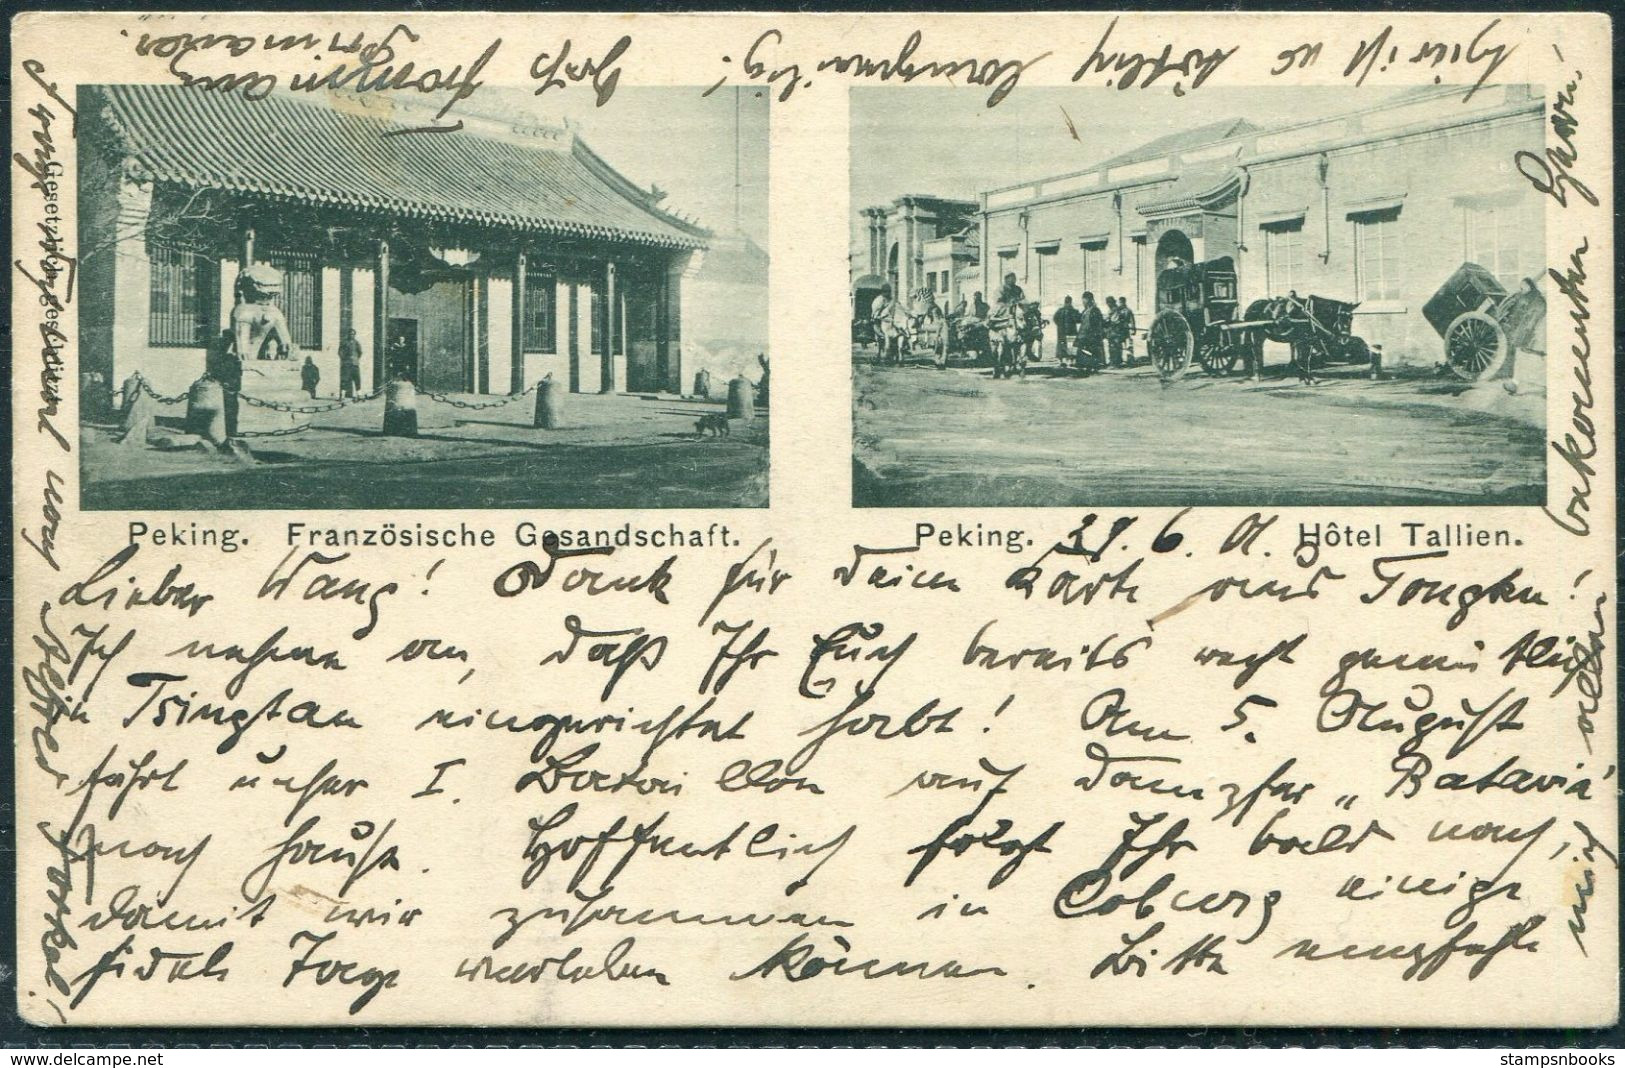 Peking. Französische Gesandschaft.
Peking. Hôtel Tallien.
Gesetzlich geschützt
29. 6. 01.
Lieber Wang! Dank für Deine Karte aus Tongku!
Ich nehme an, daß Ihr Euch bereits recht gemütlich
in Tsingtau eingerichtet habt! Am 5. August
fährt unser I. Bataillon auf Dampfer „Batavia"
nach Hause. Hoffentlich folgt Ihr bald nach,
damit wir zusammen in Coburg einige
fidele Tage verleben können. Bitte empfehle
mich allen
bekannten Herrn.
Hier ist es tötlich langweilig!
Alfred
stampsnbooks